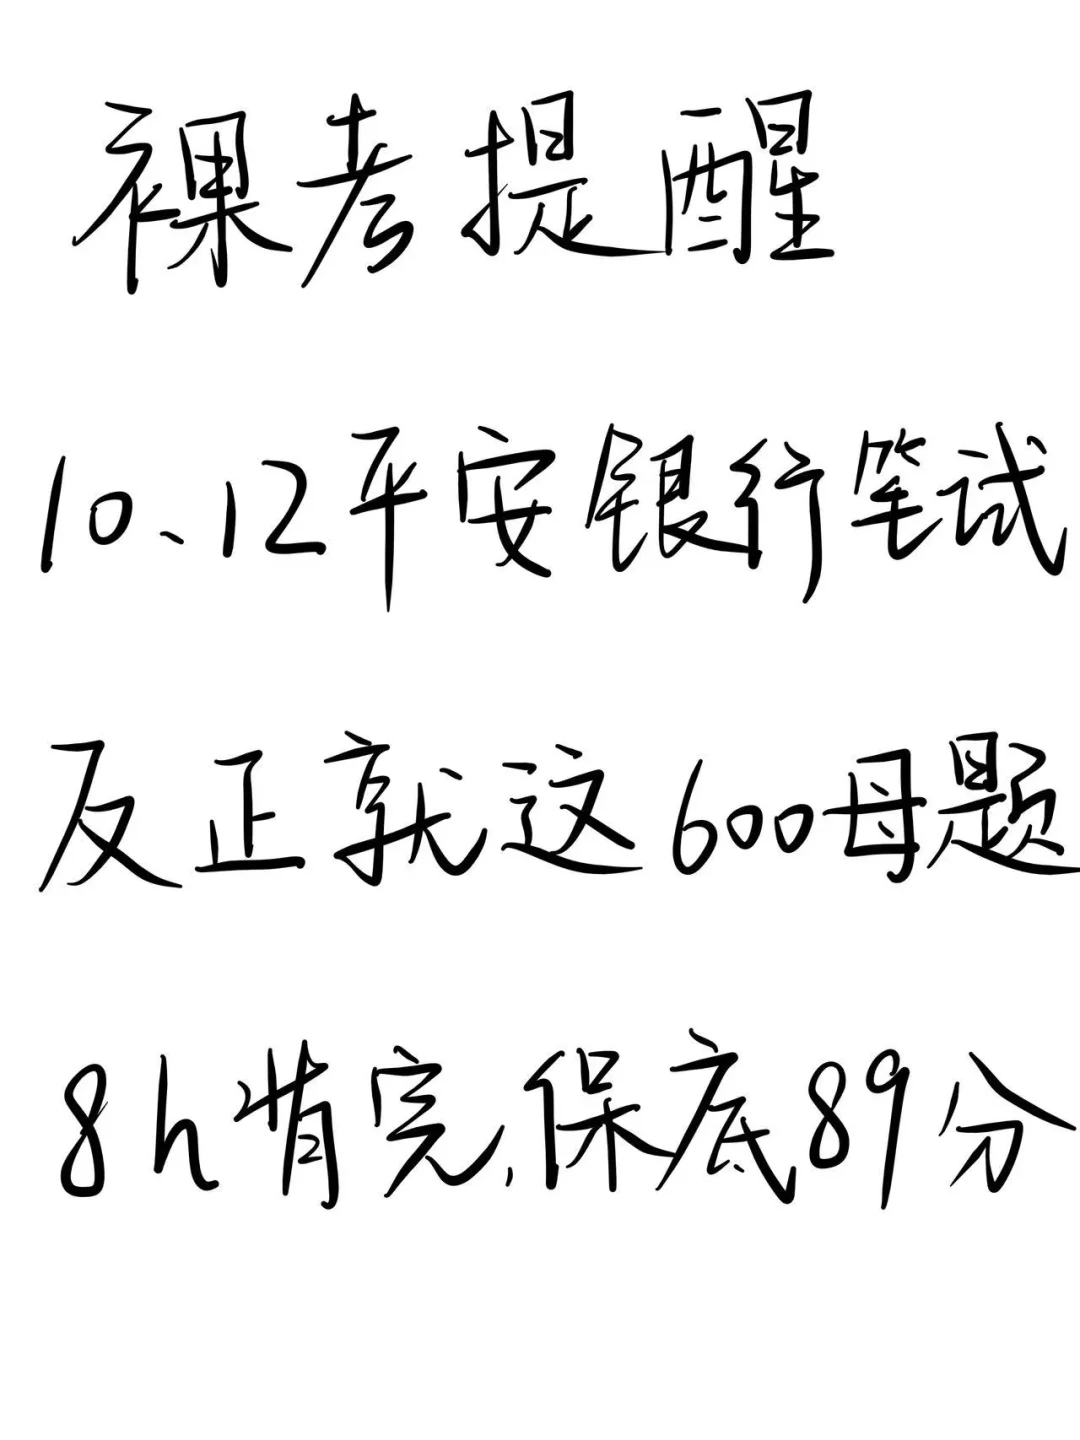 裸考提醒
10、12平安银行笔试
反正就这600母题
8h背完,保底89分